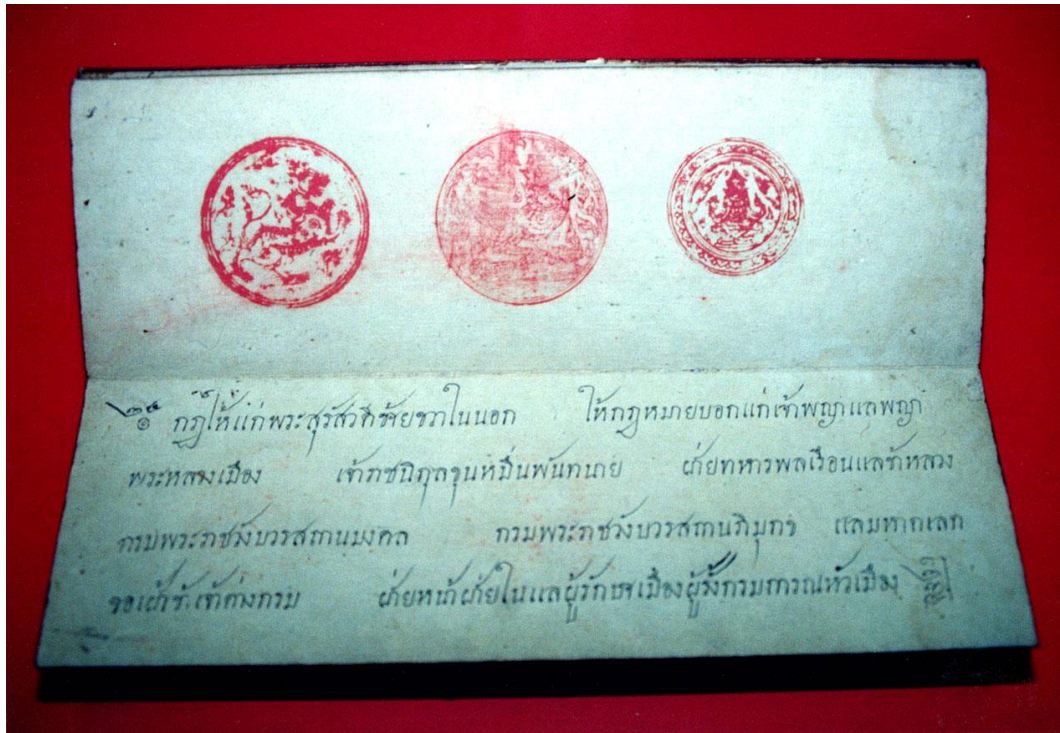 ๒๕
๑ กฎให้แก่พระสุรัสวดีซ้ายขวาในนอก ให้กฎหมายบอกแก่เจ้าพญาแลพญา
พระหลวงเมือง เจ้าราชนิกุลขุนหมื่นพันทนาย ฝ่ายทหารพลเรือนแลข้าหลวง
กรมพระราชวังบวรสถานมงคล กรมพระราชวังบวรสถานภิมุกข แลมหาดเลก
ขอเฝ้าข้าเจ้าต่างกรม ฝ่ายหน้าฝ่ายในแลผู้รักษาเมืองผู้รั้งกรมการณหัวเมือง